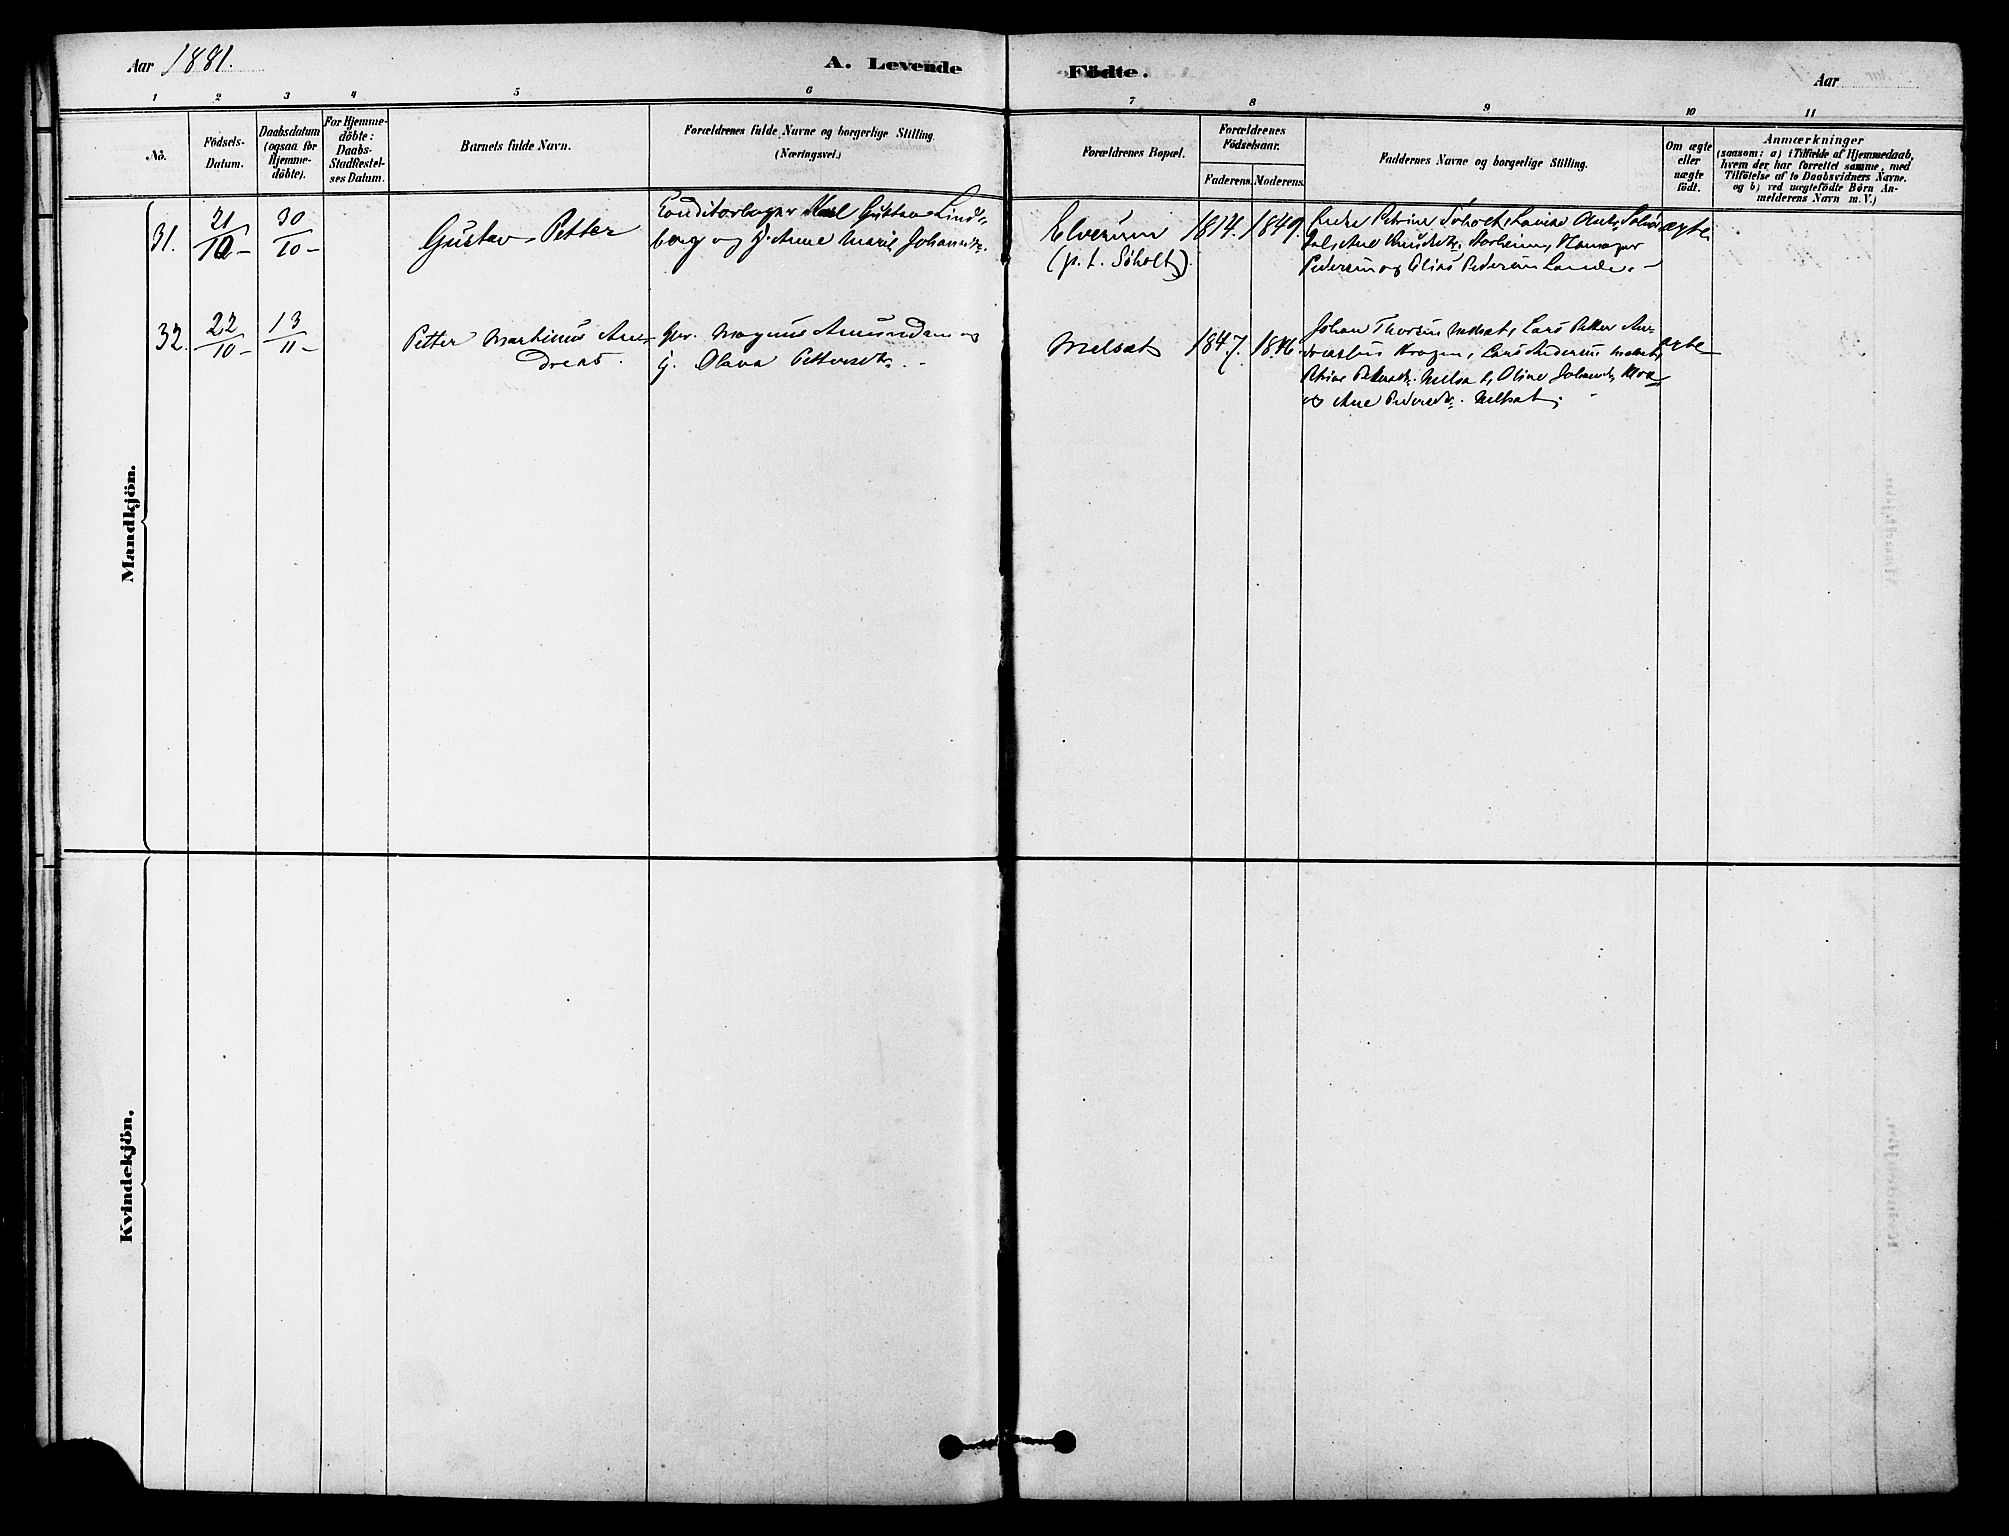 Aar 1881.
A. Levende Födte.
Aar
1 2 3 4 5 6 7 8 9 10 11
Nô.
Födsels-
Datum.
Daabsdatum
(ogsaa for
Hjemme-
döbte).
For Hjemme-
döbte:
Daabs-
Stadfæstel-
ses Datum.
Barnets fulde Navn.
Forældrenes fulde Navne og borgerlige Stilling
(Næringsvei.)
Forældrenes Bopæl.
Forældrenes
Födselsaar.
Faderens. Moderens.
Faddernes Navne og borgerlige Stilling.
Om ægte
eller
uægte
födt.
Anmærkninger
(saasom: a) i Tilfælde af Hjemmedaab,
hvem der har forrettet samme, med
Tilföielse af to Daabsvidners Navne.
og b) ved uægtefödte Börn An-
melderens Navn m. V.)
Mandkjön.
31.
21/10 -
30/10 -
Gustav Petter
Conditorbager Karl Gustav Lind-
berg og H. Anne Marie Johannsd.
Elverum
(p. t. Söholt).
1849.
Petrine Söholt, Lovise
Pedersen og Elias Pedersen Lande. -
ægte
32.
22/10 -
13/11 -
Petter Martinus An-
dreas.
Gbr. Magnus Amundsen og
H. Olava Pettersdtr. -
Melsæt
1847. 1846.
Johan Thorsen Melsæt, Lars Petter An-
Kragen, Lars Andersen Melsæt,
Petrine Melsæt, Oline
og Ane Pedersdtr. Melsæt.
ægte
Kvindekjön.